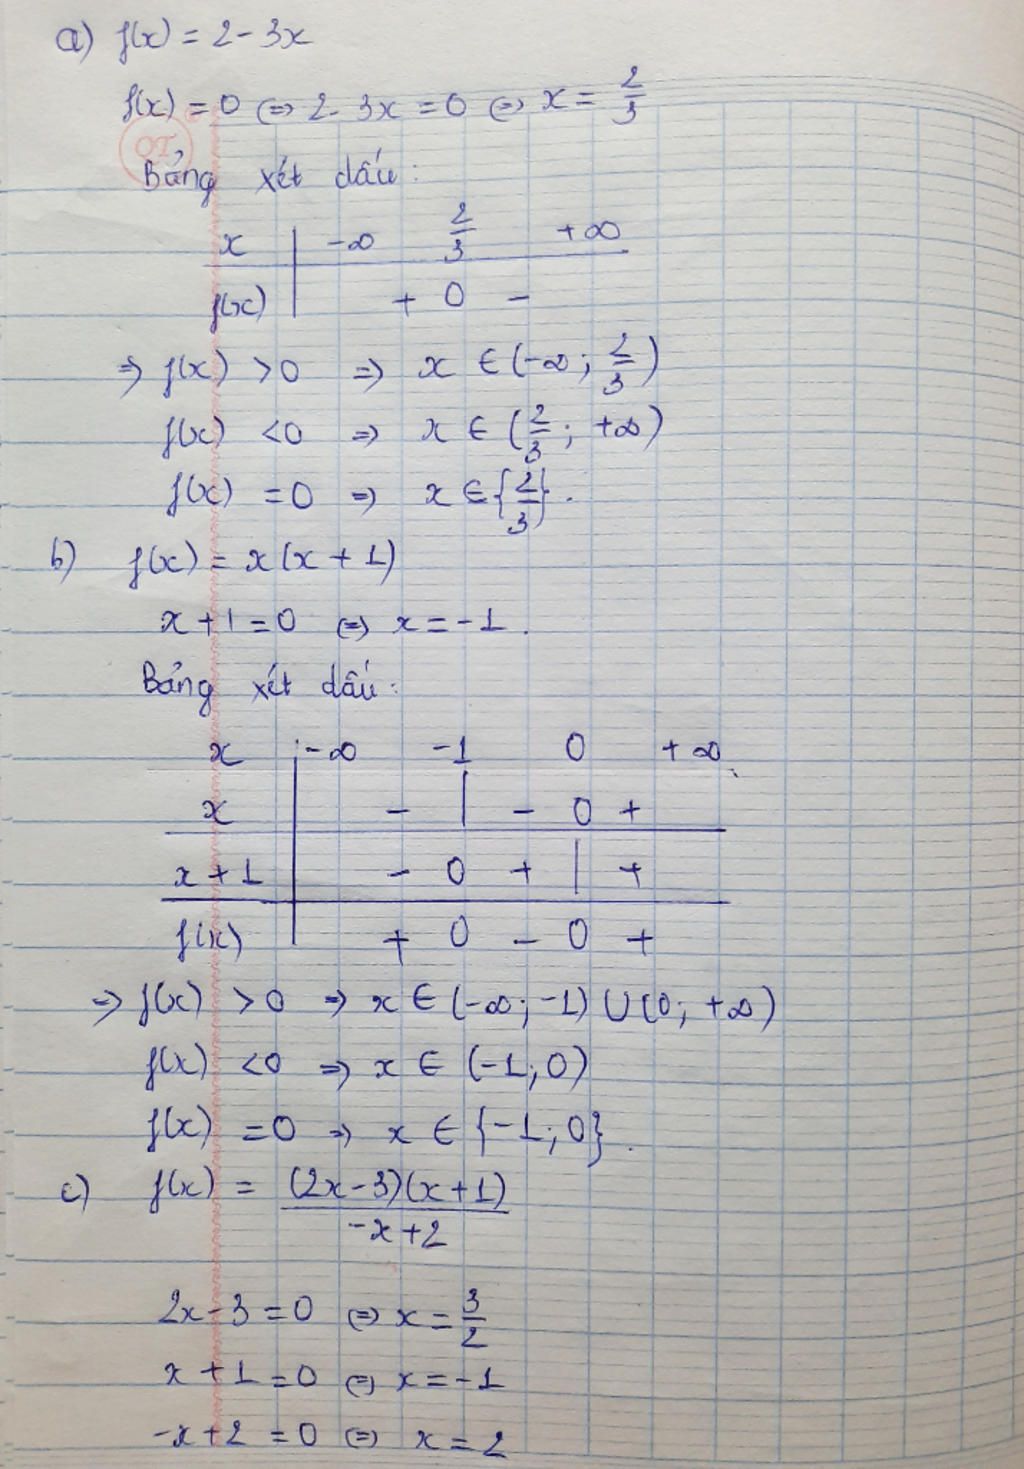 a) f(x) = 2 - 3x
f(x) = 0 ⇔ 2 - 3x = 0 ⇔ x = 2/3
Bảng xét dấu:
x | -∞ 2/3 +∞
f(x) | + 0 -
⇒ f(x) > 0 ⇒ x ∈ (-∞; 2/3)
f(x) < 0 ⇒ x ∈ (2/3; +∞)
f(x) = 0 ⇒ x ∈ {2/3}.
b) f(x) = x(x + 1)
x + 1 = 0 ⇔ x = -1.
Bảng xét dấu:
x | -∞ -1 0 +∞
x | - | - 0 +
x + 1 | - 0 + | +
f(x) | + 0 - 0 +
⇒ f(x) > 0 ⇒ x ∈ (-∞; -1) ∪ (0; +∞)
f(x) < 0 ⇒ x ∈ (-1; 0)
f(x) = 0 ⇒ x ∈ {-1; 0}.
c) f(x) = (2x - 3)(x + 1) / -x + 2
2x - 3 = 0 ⇔ x = 3/2
x + 1 = 0 ⇔ x = -1
-x + 2 = 0 ⇔ x = 2